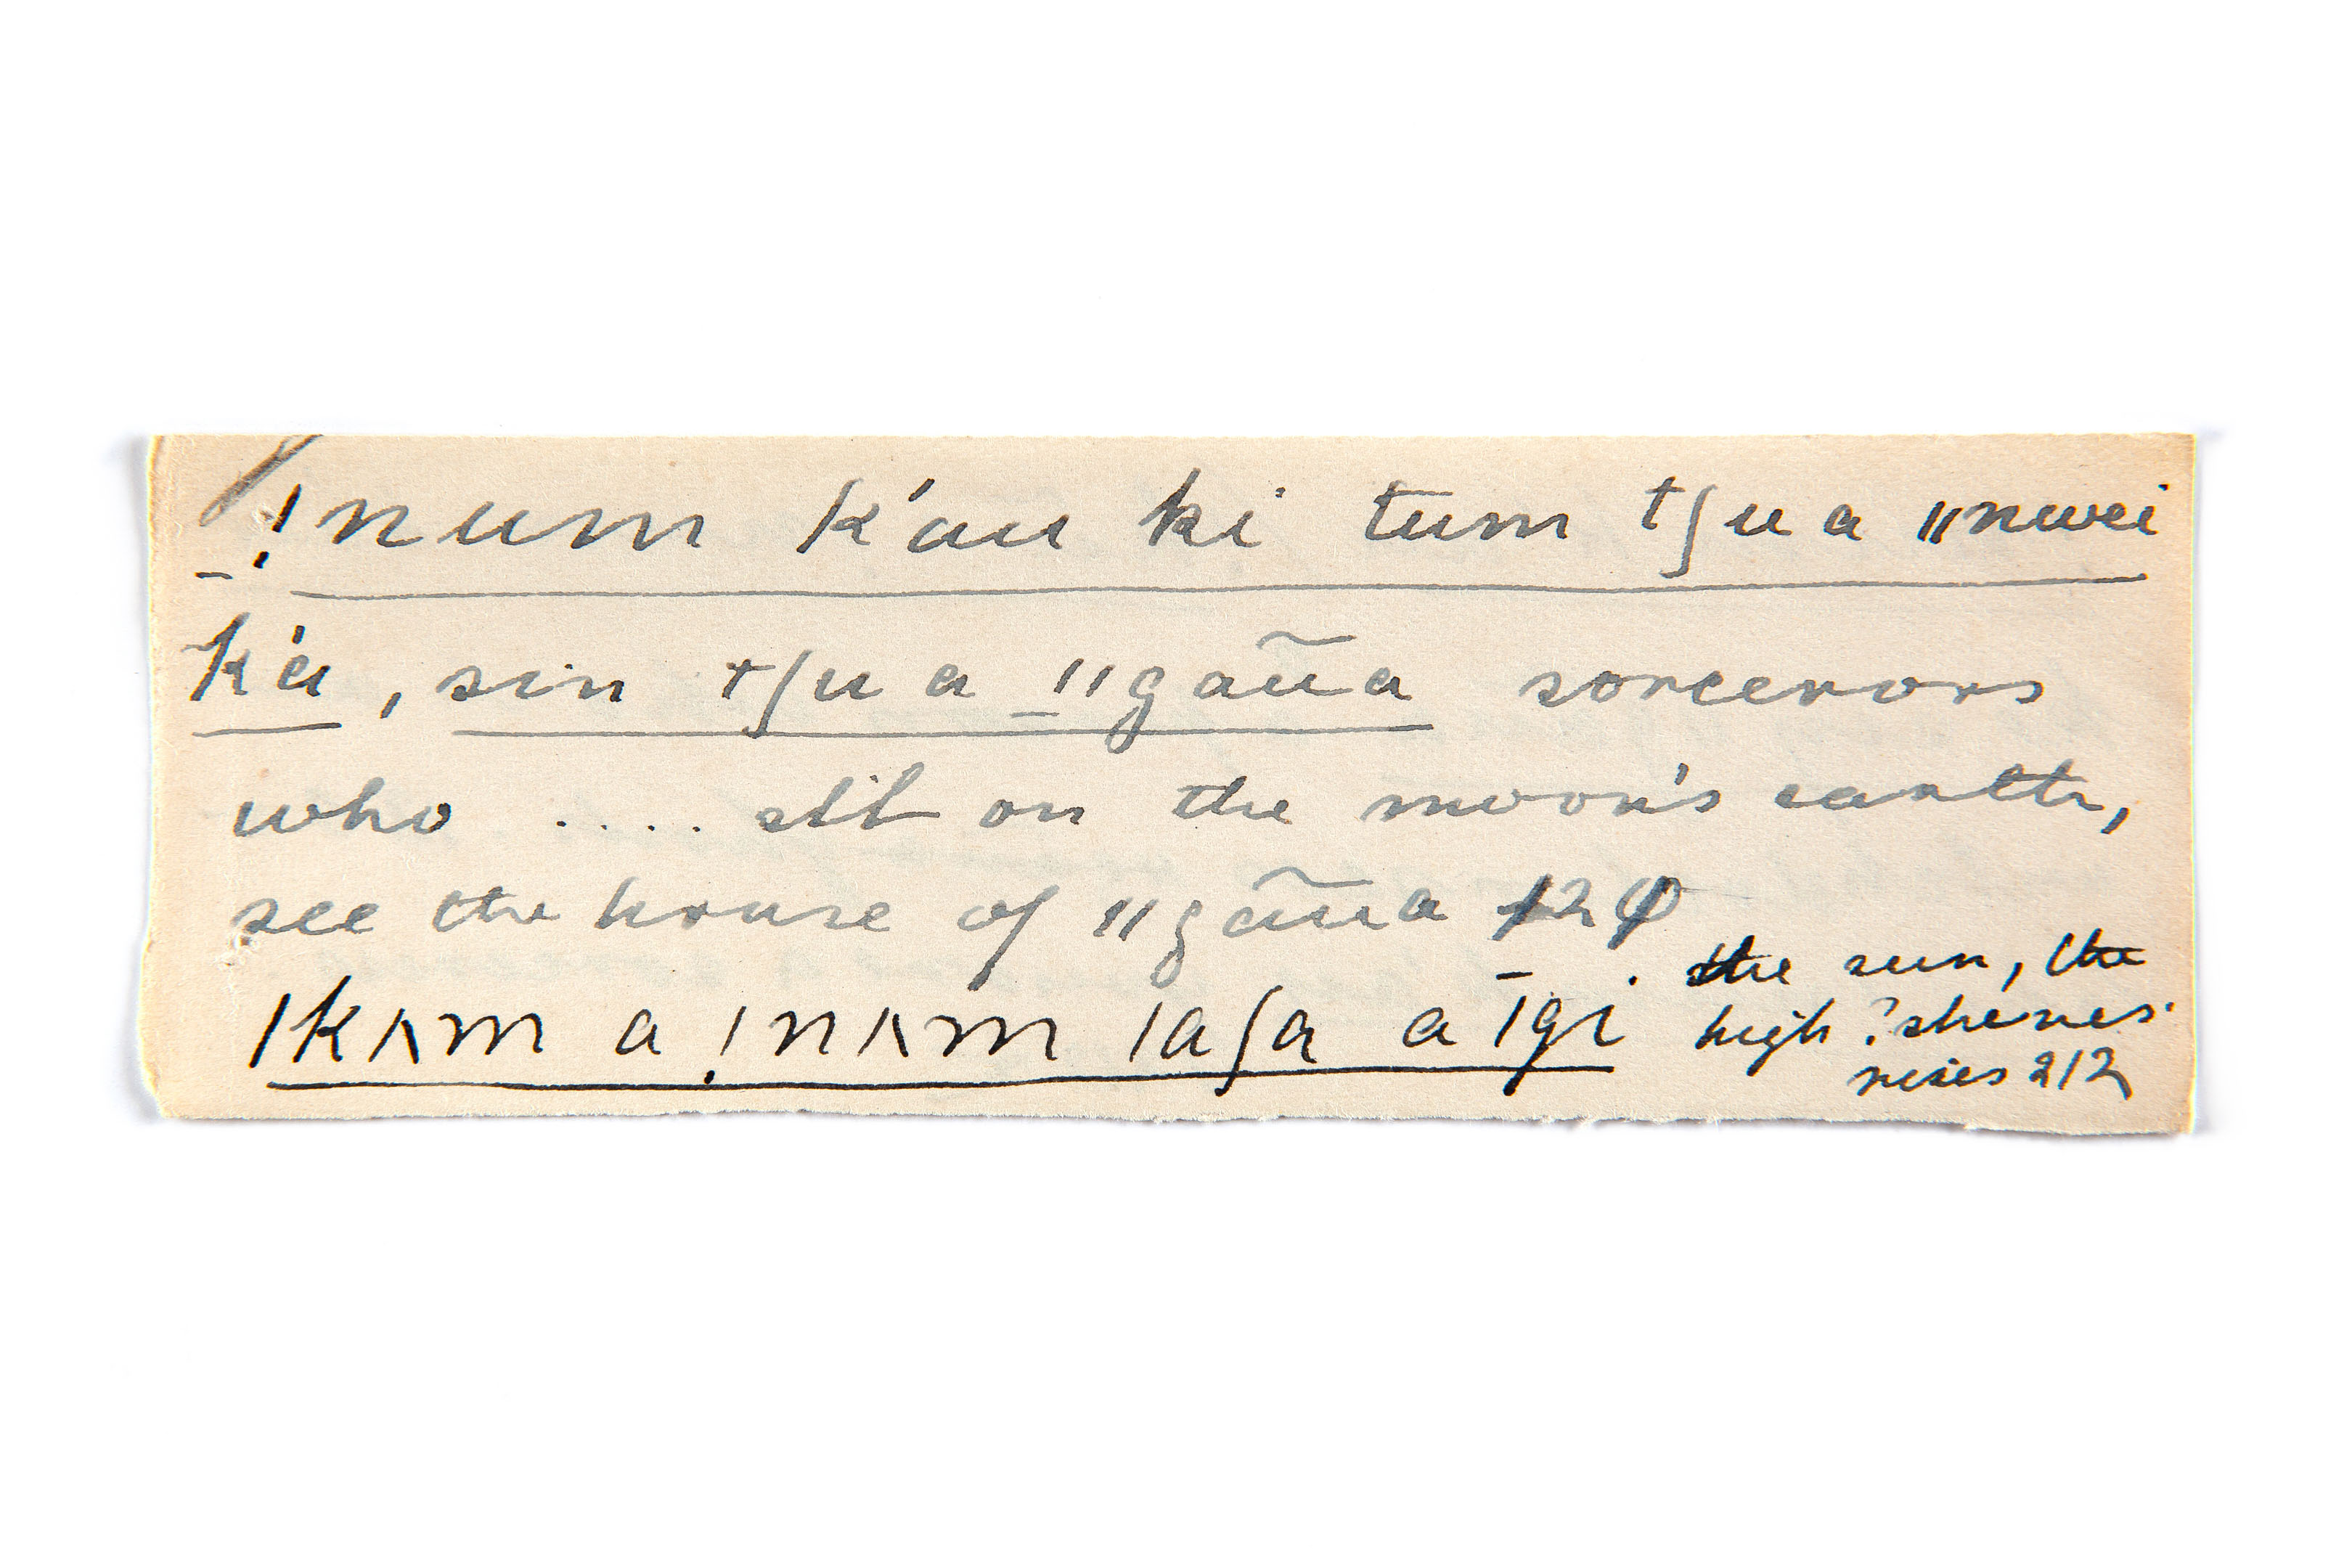 !num k'au ki tum tʃu a ǁnwei
k'a, sin tʃu a ǁgaũa sorcerors
who .... sit on the moon's earth,
see the house of ǁgaũa
ǀkʌm a !nʌm ǀaʃa a ǀgi . the sun, the
high ? shines
rises 212